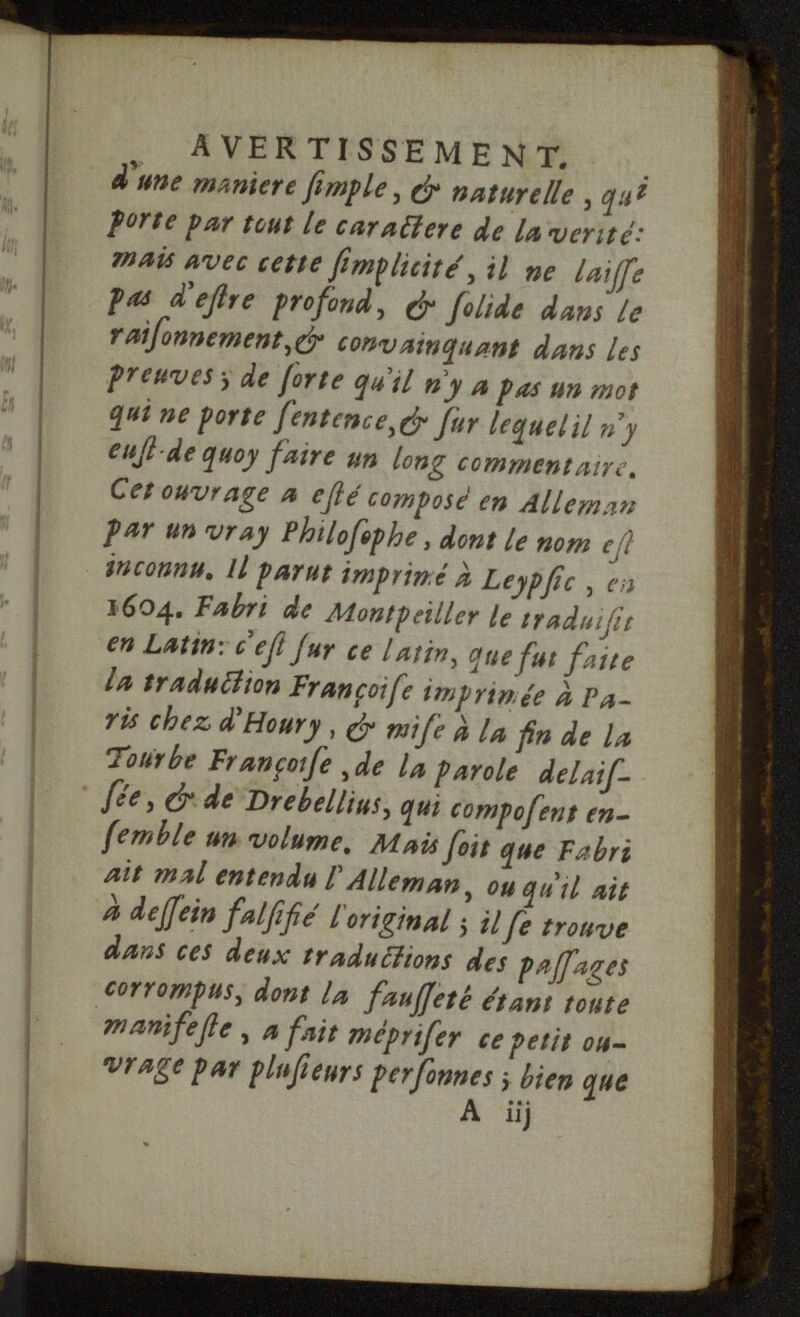 AVERTISSEMENT.
d'une maniere ſimple, & naturelle, qui
porte par tout le caractere de la verité:
mais avec cette ſimplicité, il ne laiſſe
pas d'eſtre profond, & ſolide dans le
raiſonnement, & convainquant dans les
preuves; de ſorte qu'il n'y a pas un mot
qui ne porte ſentence, & ſur lequel il n'y
euſt de quoy faire un long commentaire.
Cet ouvrage a eſté composé en Alleman
par un vray Philoſophe, dont le nom eſt
inconnu. Il parut imprimé à Leypſic, en
1604. Fabri de Montpeiller le traduiſit
en Latin: c'eſt ſur ce latin, que fut faite
la traduction Françoiſe imprimée à Pa-
ris chez d'Houry, & miſe à la fin de la
Tourbe Françoiſe, de la parole delaiſ-
ſée, & de Drebellius, qui compoſent en-
ſemble un volume. Mais ſoit que Fabri
ait mal entendu l'Alleman, ou qu'il ait
à deſſein falſifié l'original; il ſe trouve
dans ces deux traductions des paſſages
corrompus, dont la fauſſeté étant toute
manifeſte, a fait mépriſer ce petit ou-
vrage par pluſieurs perſonnes; bien que
A iij